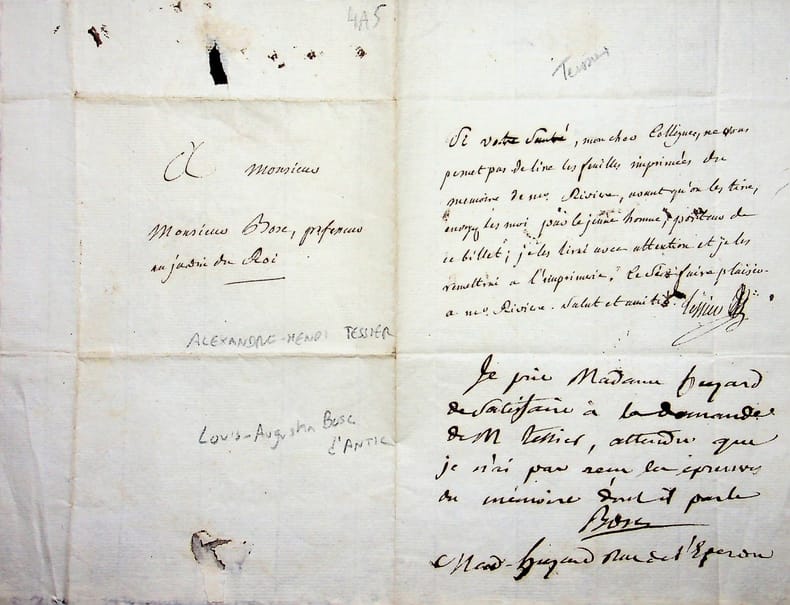 4A5
A Monsieur
Monsieur Bosc, professeur
au jardin du Roi
ALEXANDRE-HENRI TESSIER
Louis-Augustin Bosc
d'ANTIC
Tessier
Si votre Santé, mon cher Collègue, ne vous
permet pas de lire les feuilles imprimées du
memoire de mr. Riviere, avant qu'on les tire,
envoyez les moi par le jeune homme, porteur de
ce billet; je les lirai avec attention et je les
remettrai a l'imprimerie. Ce Sera faire plaisir
a mr. Riviere. Salut et amitié. Tessier
Je prie Madame huzard
de Satisfaire à la demande
de M Tessier, attendu que
je n'ai pas recu les épreuves
du mémoire dont il parle
Bosc
Mad. huzard Rue de l'Eperon